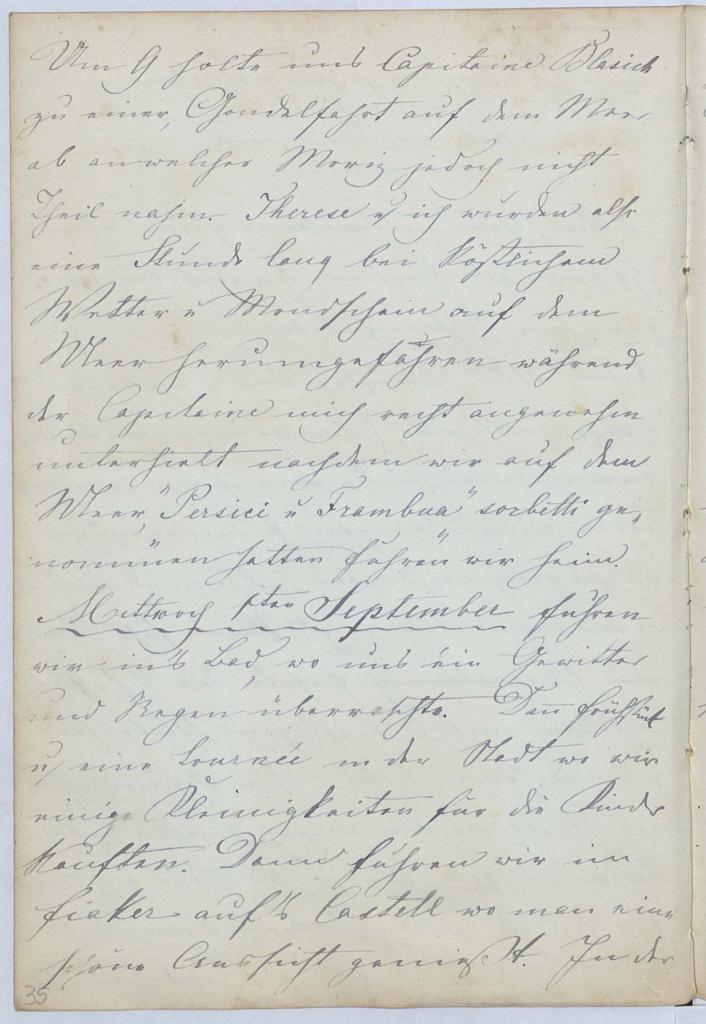 Um 9 holte uns Capitaine Blasich
zu einer, Gondelfahrt auf dem Meer
ab an welcher Moriz jedoch nicht
Theil nahm. Therese u ich wurden also
eine Stunde lang bei köstlichem
Wetter u Mondschein auf dem
Meer herumgefahren während
der Capitaine mich recht angenehm
unterhielt nachdem wir auf dem
Meer, "Persici u Frambua" sorbetti ge-
nommen hatten fuhren wir heim.
Mittwoch 1ten September fuhren
wir in's Bad, wo uns ein Gewitter
und Regen überraschte. Dann frühstück
u eine Tournée in der Stadt wo wir
einige Kleinigkeiten für die Kinder
kauften. Dann fuhren wir im
fiaker auf's Castell wo man eine
schöne Aussicht genießt. In der
35